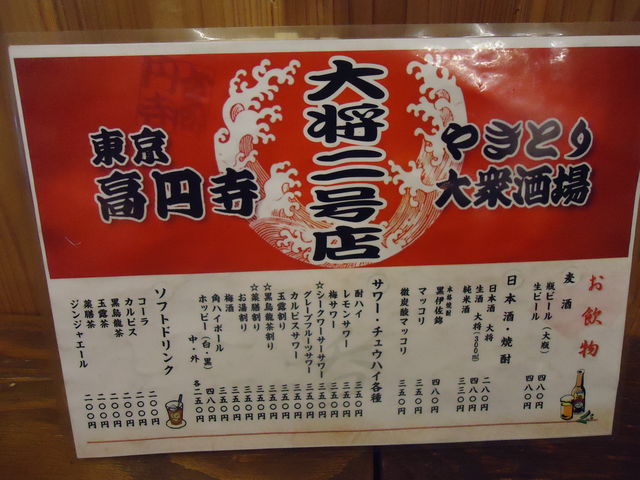 やきとり
大衆酒場
大将二号店
東京
高円寺
お飲物
麦酒
瓶ビール(大瓶) 四八〇円
生ビール 四八〇円
日本酒・焼酎
日本酒 大将 二八〇円
生酒 大将(300㎖) 四八〇円
純米酒 三三〇円
本格焼酎
黒伊佐錦 四八〇円
マッコリ 三五〇円
微炭酸マッコリ 三五〇円
サワー・チュウハイ各種
酎ハイ 三五〇円
レモンサワー 三五〇円
梅サワー 三五〇円
☆シークワーサーサワー 三五〇円
グレープフルーツサワー 三五〇円
カルピスサワー 三五〇円
玉露割り 三五〇円
☆黒烏龍茶割り 三五〇円
☆薬膳割り 三五〇円
お湯割り 三五〇円
梅酒 三五〇円
角ハイボール 四八〇円
ホッピー(白・黒) 中・外 各二五〇円
ソフトドリンク
コーラ 二〇〇円
カルピス 二〇〇円
黒烏龍茶 二〇〇円
玉露茶 二〇〇円
薬膳茶 二〇〇円
ジンジャエール 二〇〇円